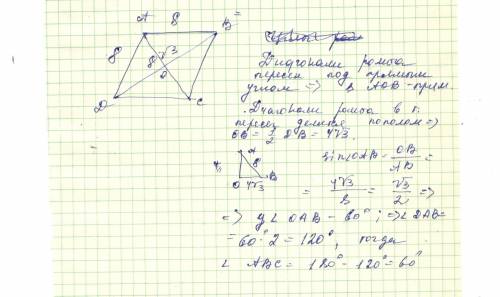 A 8 B
8
8√3
O
D C
Диагонали ромба
пересек под прямым
углом => △ AOB - прям.
Диагонали ромба в т.
пересеч делятся пополам =>
OB = 1/2 DB = 4√3.
A
8
O 4√3 B
sin∠OAB = OB/AB =
= 4√3/8 = √3/2 =>
=> ∠ OAB = 60°; => ∠ DAB =
= 60°·2 = 120°, тогда
∠ ABC = 180° - 120° = 60°